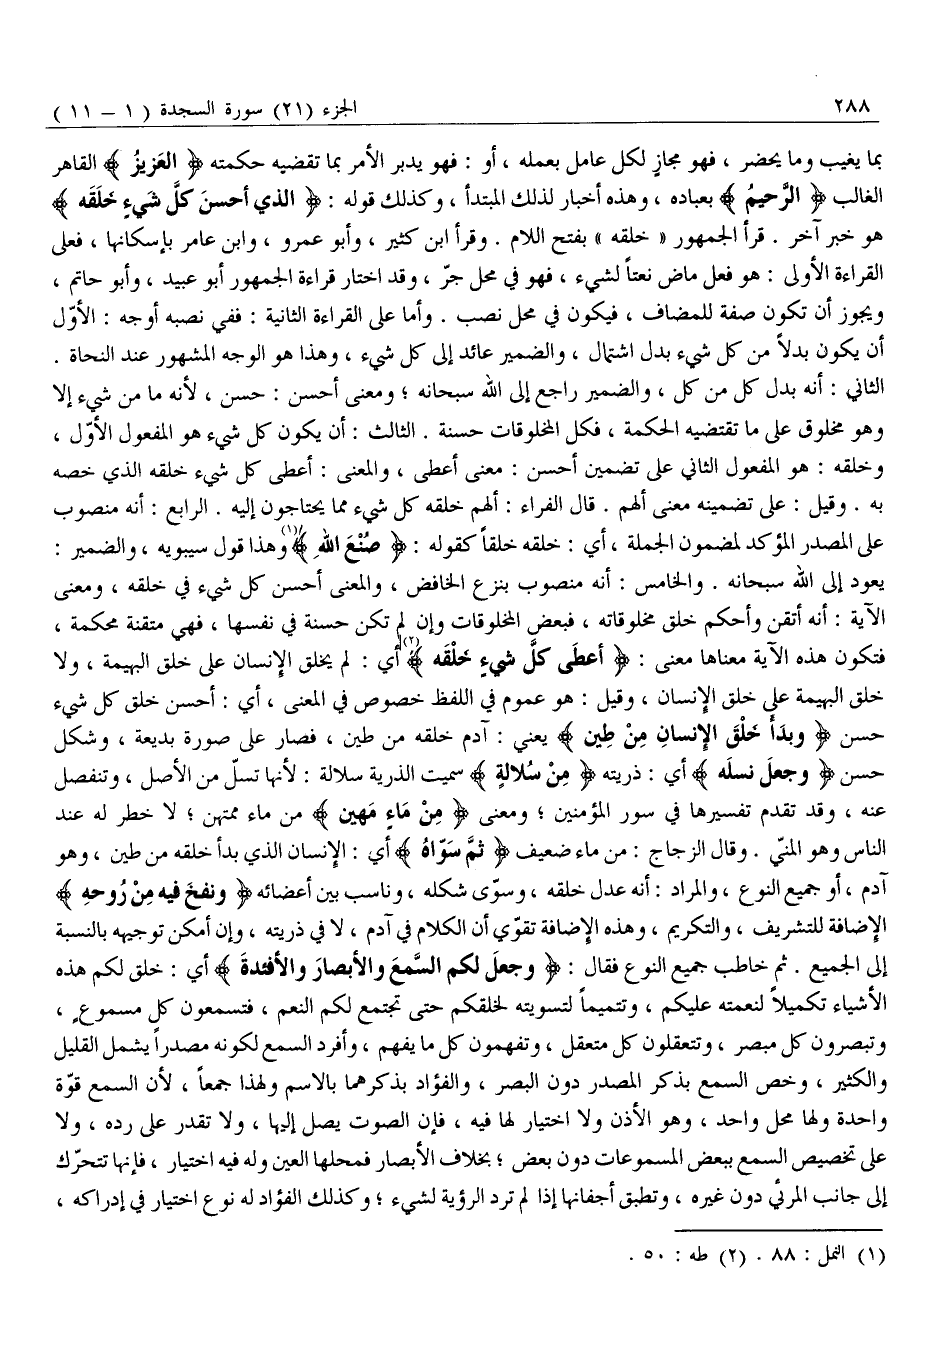 ٢٨٨ الجزء (٢١) سورة السجدة ( ١ – ١١ )
بما يغيب وما يحضر ، فهو مجازٍ لكل عامل بعمله ، أو : فهو يدبر الأمر بما تقضيه حكمته ﴿ العَزيزُ ﴾ القاهر
الغالب ﴿ الرَّحيمُ ﴾ بعباده ، وهذه أخبار لذلك المبتدأ ، وكذلك قوله : ﴿ الذي أحسنَ كلَّ شَيءٍ خَلَقَه ﴾
هو خبر آخر . قرأ الجمهور « خلقه » بفتح اللام . وقرأ ابن كثير ، وأبو عمرو ، وابن عامر بإسكانها ، فعلى
القراءة الأولى : هو فعل ماض نعتاً لشيء ، فهو في محل جرّ ، وقد اختار قراءة الجمهور أبو عبيد ، وأبو حاتم ،
ويجوز أن تكون صفة للمضاف ، فيكون في محل نصب . وأما على القراءة الثانية : ففي نصبه أوجه : الأوّل
أن يكون بدلاً من كل شيء بدل اشتمال ، والضمير عائد إلى كل شيء ، وهذا هو الوجه المشهور عند النحاة .
الثاني : أنه بدل كل من كل ، والضمير راجع إلى الله سبحانه ؛ ومعنى أحسن : حسن ، لأنه ما من شيء إلا
وهو مخلوق على ما تقتضيه الحكمة ، فكل المخلوقات حسنة . الثالث : أن يكون كل شيء هو المفعول الأوّل ،
وخلقه : هو المفعول الثاني على تضمين أحسن : معنى أعطى ، والمعنى : أعطى كل شيء خلقه الذي خصه
به . وقيل : على تضمينه معنى ألهم . قال الفراء : ألهم خلقه كل شيء مما يحتاجون إليه . الرابع : أنه منصوب
على المصدر المؤكد لمضمون الجملة ، أي : خلقه خلقاً كقوله : ﴿ صُنْعَ اللهِ ﴾(١) وهذا قول سيبويه ، والضمير :
يعود إلى الله سبحانه . والخامس : أنه منصوب بنزع الخافض ، والمعنى أحسن كل شيء في خلقه ، ومعنى
الآية : أنه أتقن وأحكم خلق مخلوقاته ، فبعض المخلوقات وإن لم تكن حسنة في نفسها ، فهي متقنة محكمة ،
فتكون هذه الآية معناها معنى : ﴿ أعطَى كلَّ شيءٍ خَلْقَه ﴾(٢) أي : لم يخلق الإنسان على خلق البهيمة ، ولا
خلق البهيمة على خلق الإنسان ، وقيل : هو عموم في اللفظ خصوص في المعنى ، أي : أحسن خلق كل شيء
حسن ﴿ وبدَأَ خَلْقَ الإنسانِ مِنْ طِين ﴾ يعني : آدم خلقه من طين ، فصار على صورة بديعة ، وشكل
حسن ﴿ وجعلَ نسلَه ﴾ أي : ذريته ﴿ مِنْ سُلالةٍ ﴾ سميت الذرية سلالة : لأنها تسلّ من الأصل ، وتنفصل
عنه ، وقد تقدم تفسيرها في سور المؤمنين ؛ ومعنى ﴿ مِنْ مَاءٍ مَهين ﴾ من ماء ممتهن ؛ لا خطر له عند
الناس وهو المنيّ . وقال الزجاج : من ماء ضعيف ﴿ ثمَّ سَوَّاهُ ﴾ أي : الإنسان الذي بدأ خلقه من طين ، وهو
آدم ، أو جميع النوع ، والمراد : أنه عدل خلقه ، وسوّى شكله ، وناسب بين أعضائه ﴿ ونفخَ فيه مِنْ رُوحهِ ﴾
الإضافة للتشريف ، والتكريم ، وهذه الإضافة تقوّي أن الكلام في آدم ، لا في ذريته ، وإن أمكن توجيهه بالنسبة
إلى الجميع . ثم خاطب جميع النوع فقال : ﴿ وجعلَ لكم السَّمعَ والأبصارَ والأفئدةَ ﴾ أي : خلق لكم هذه
الأشياء تكميلاً لنعمته عليكم ، وتتميماً لتسويته لخلقكم حتى تجتمع لكم النعم ، فتسمعون كل مسموعٍ ،
وتبصرون كل مبصر ، وتتعقلون كل متعقل ، وتفهمون كل ما يفهم ، وأفرد السمع لكونه مصدراً يشمل القليل
والكثير ، وخص السمع بذكر المصدر دون البصر ، والفؤاد بذكرهما بالاسم ولهذا جمعاً ، لأن السمع قوّة
واحدة ولها محل واحد ، وهو الأذن ولا اختيار لها فيه ، فإن الصوت يصل إليها ، ولا تقدر على رده ، ولا
على تخصيص السمع ببعض المسموعات دون بعض ؛ بخلاف الأبصار فمحلها العين وله فيه اختيار ، فإنها تتحرّك
إلى جانب المرئي دون غيره ، وتطبق أجفانها إذا لم ترد الرؤية لشيء ؛ وكذلك الفؤاد له نوع اختيار في إدراكه ،
(١) النمل : ٨٨ . (٢) طه : ٥٠ .